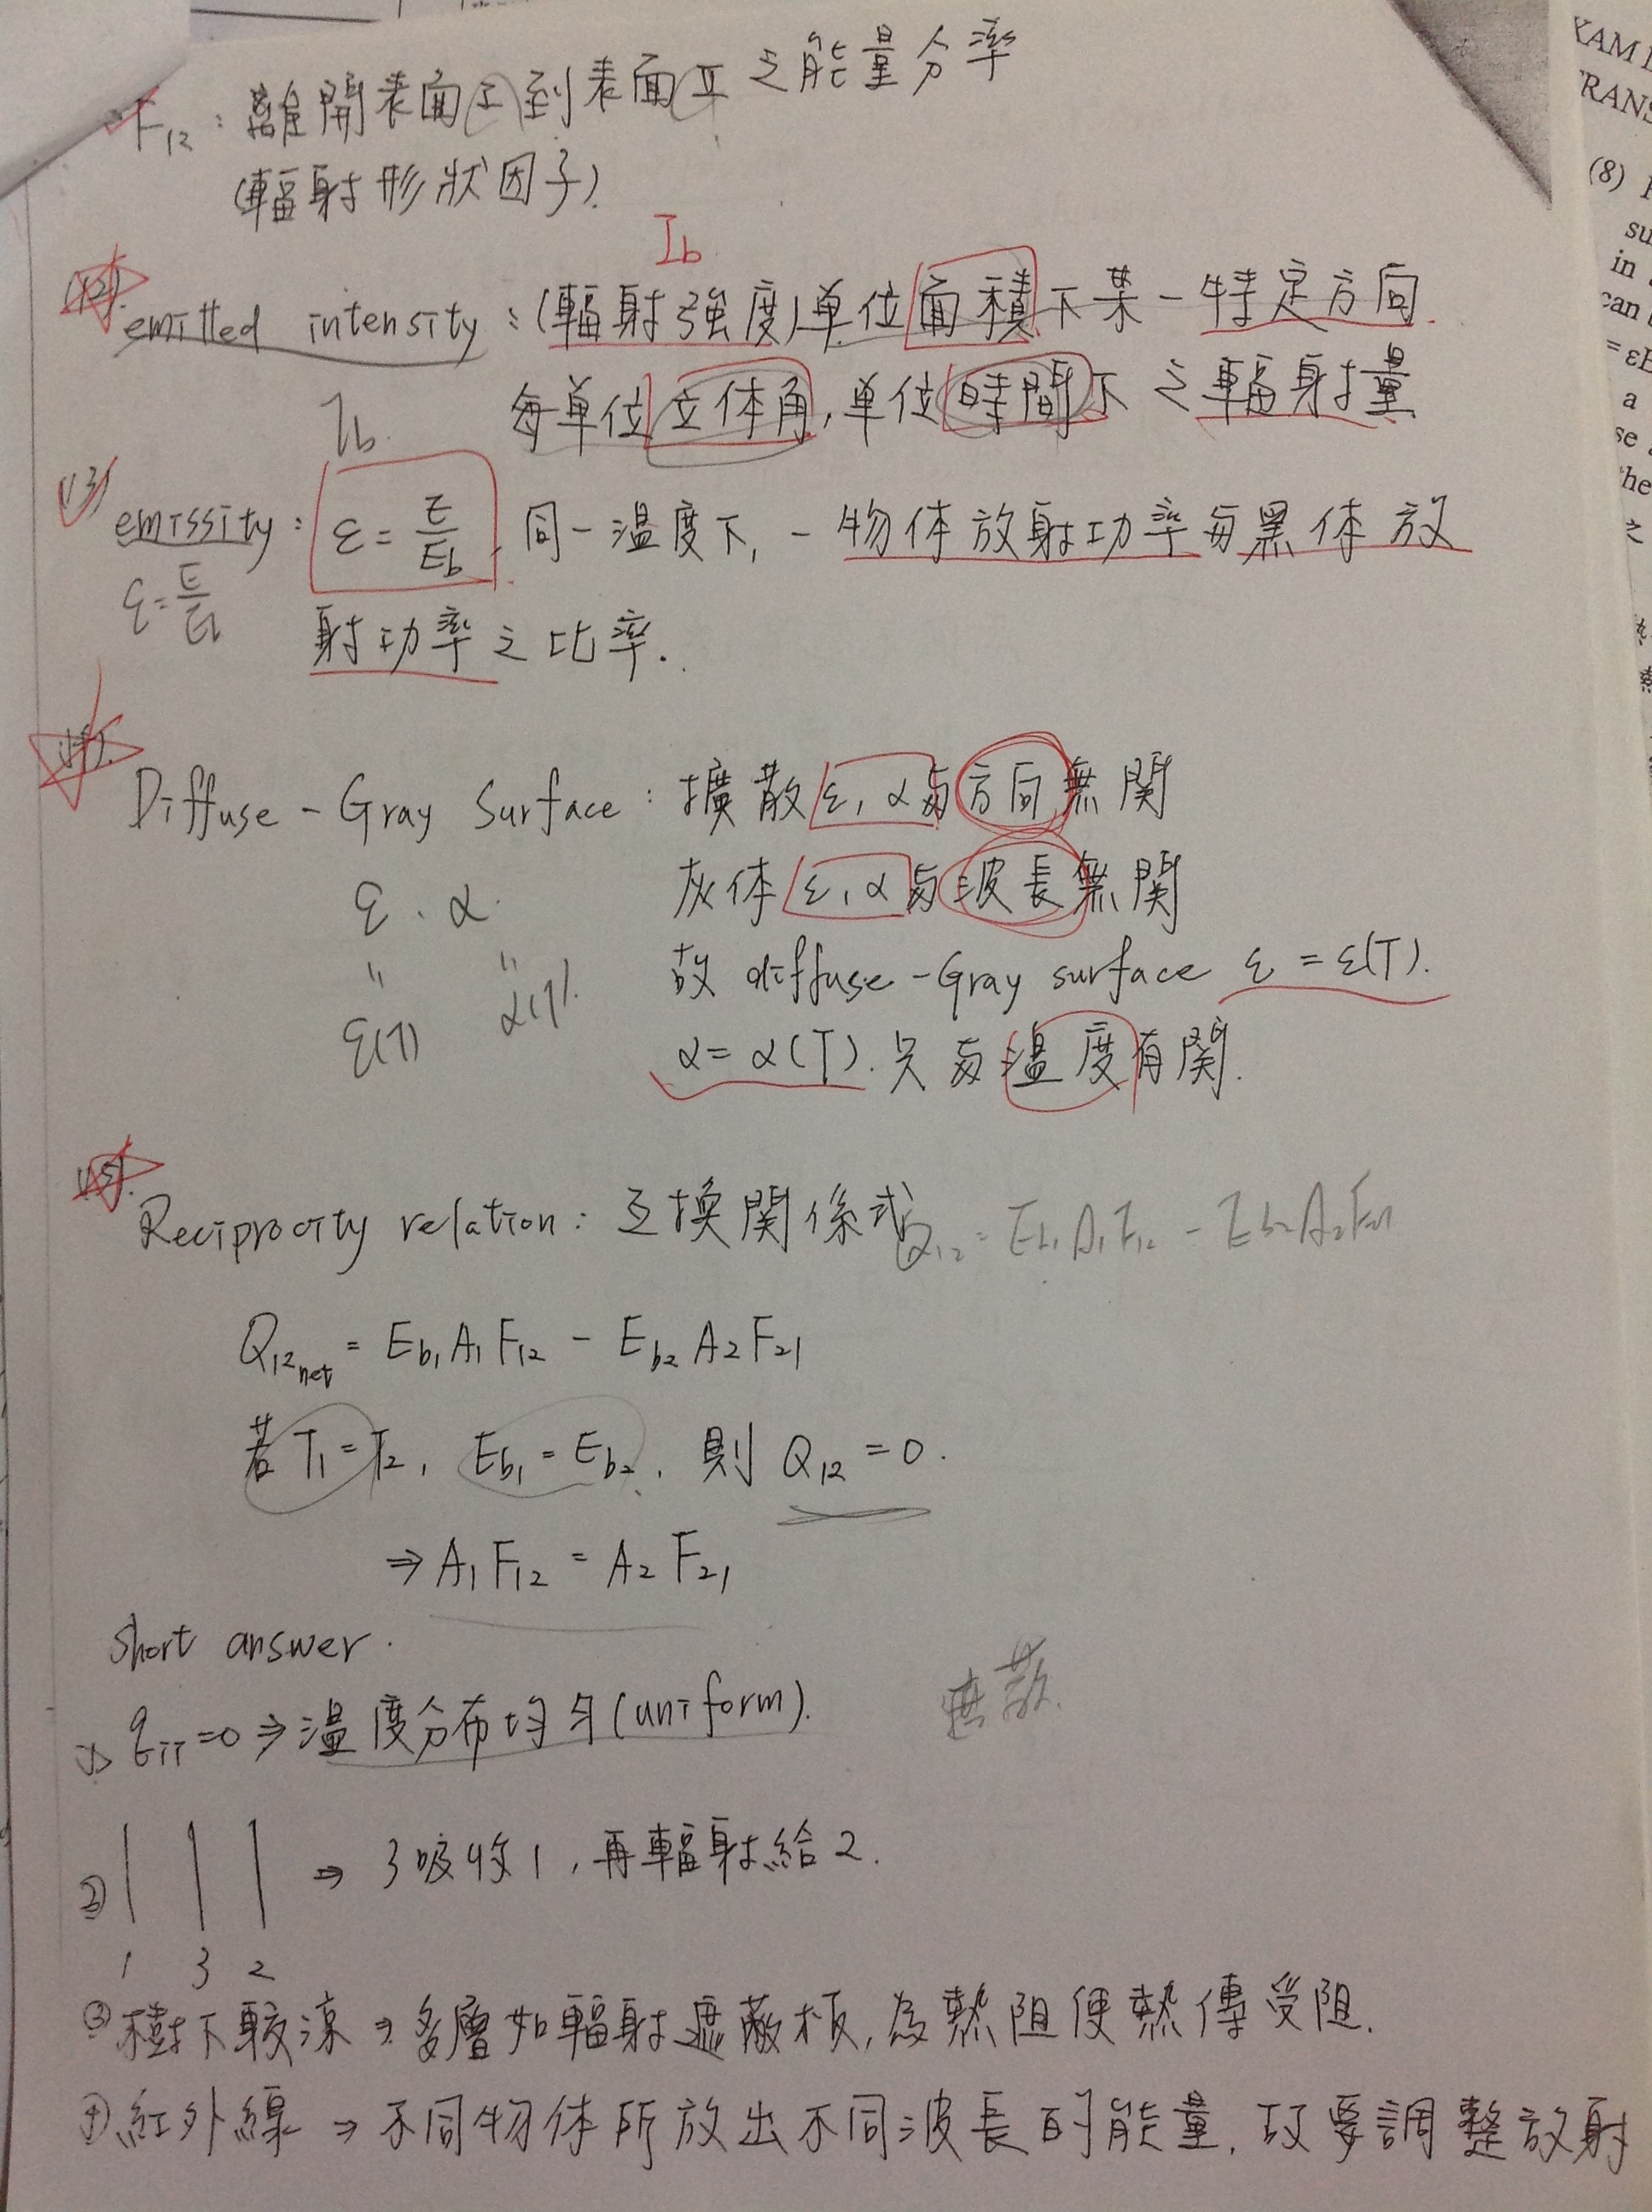 F₁₂：離開表面I到表面II之能量分率
(輻射形狀因子).
Ib
(12). emitted intensity：(輻射強度)單位面積下某一特定方向
每單位立体角,單位時間下之輻射量
Ib.
(13) emissity：ε = E/Eb. 同一溫度下,一物体放射功率与黑体放
ε = E/Eb
射功率之比率.
(14). Diffuse - Gray Surface：擴散 ε, α与方向無関
ε . α.
灰体 ε, α与波長無関
" "
故 diffuse - Gray surface ε = ε(T).
ε(T) α(T).
α = α(T). 只与溫度有関.
(15). Reciprocity relation：互換関係式 Q₁₂ = Eb₁A₁F₁₂ - Eb₂A₂F₂₁
Q₁₂net = Eb₁A₁F₁₂ - Eb₂A₂F₂₁
若T₁ = T₂, Eb₁ = Eb₂, 則 Q₁₂ = 0.
⇒ A₁F₁₂ = A₂F₂₁
short answer.
=0 ⇒ 溫度分布均勻(uniform).
② | | | ⇒ 3吸收1,再輻射給2.
1 3 2
③樹下較涼 ⇒ 多層如輻射遮蔽板,為熱阻使熱傳受阻.
④紅外線 ⇒ 不同物体所放出不同波長的能量,故要調整放射
XAM
RANS
(8)
su
in
can
= εE
a
se
he
之